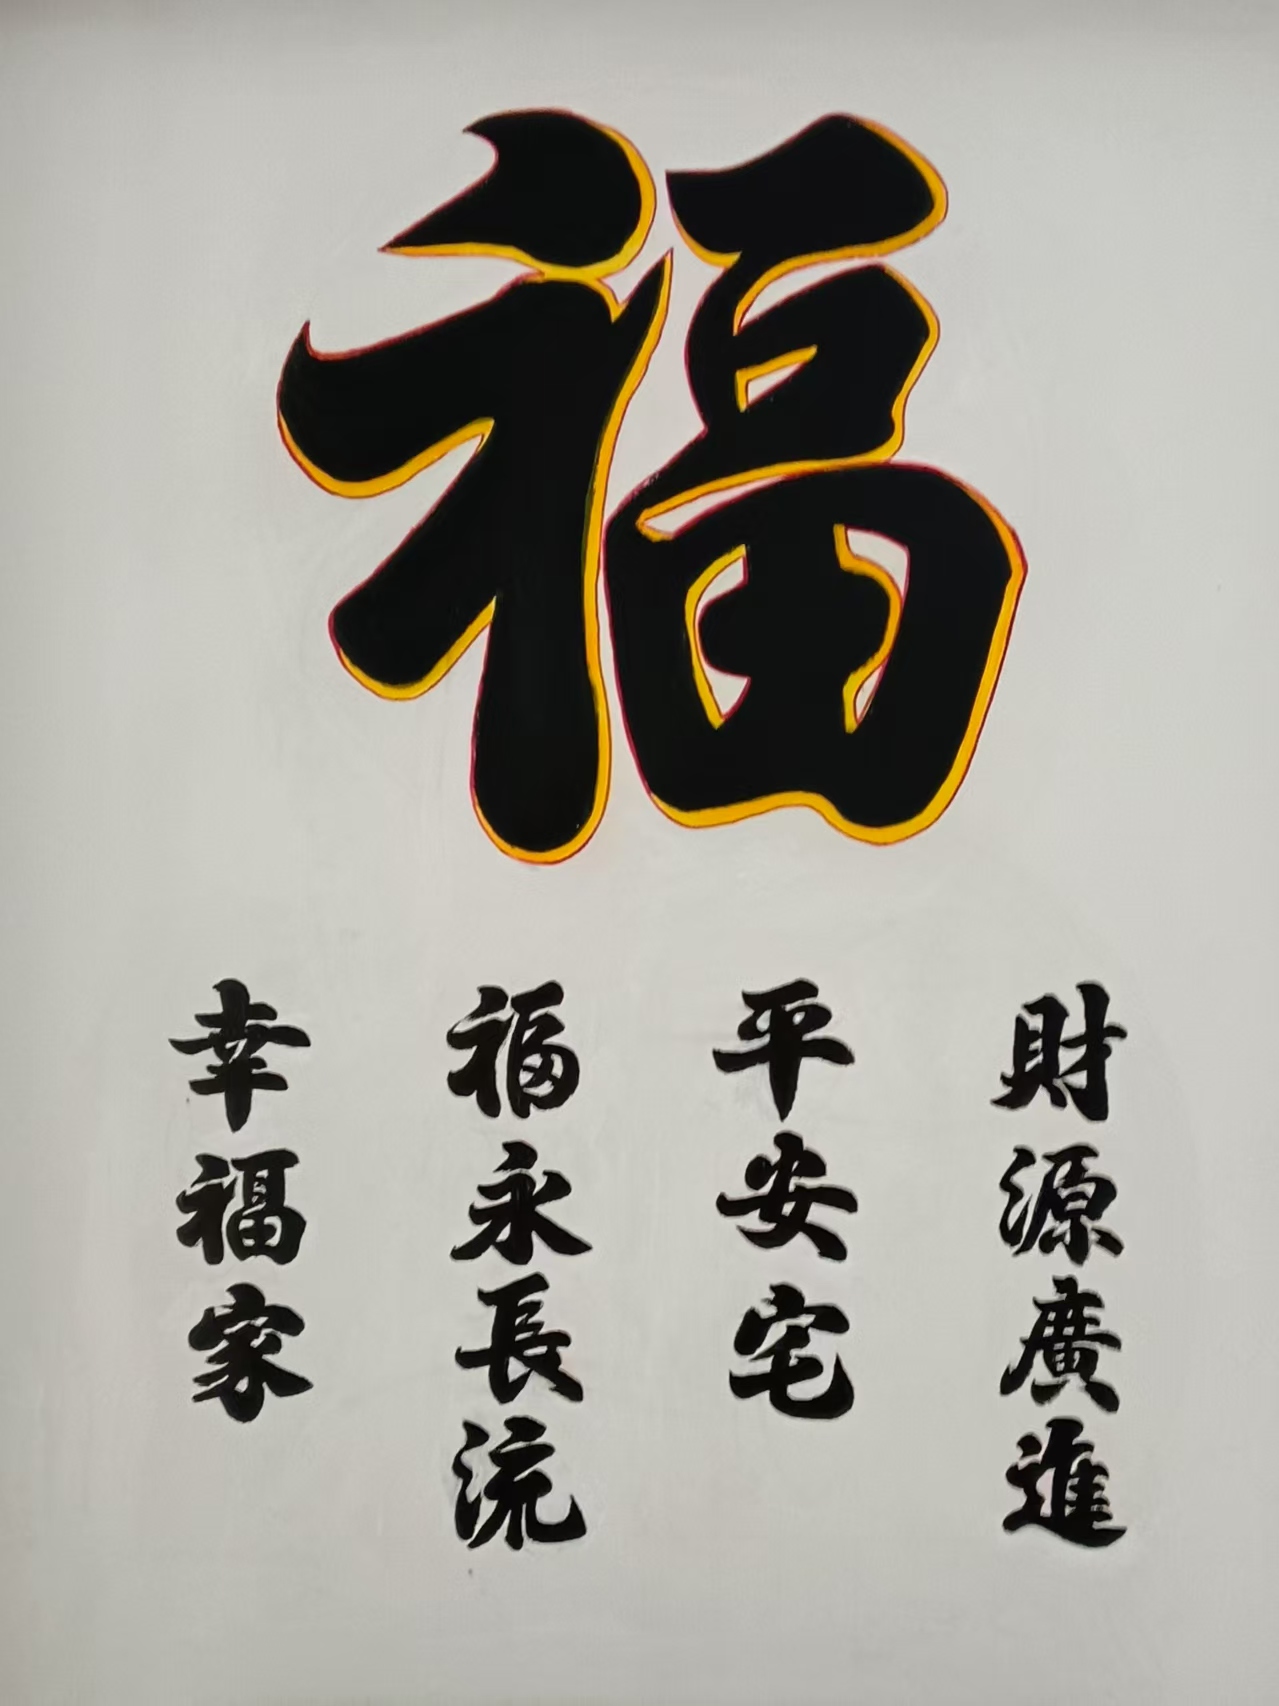 福
財源廣進
平安宅
福永長流
幸福家